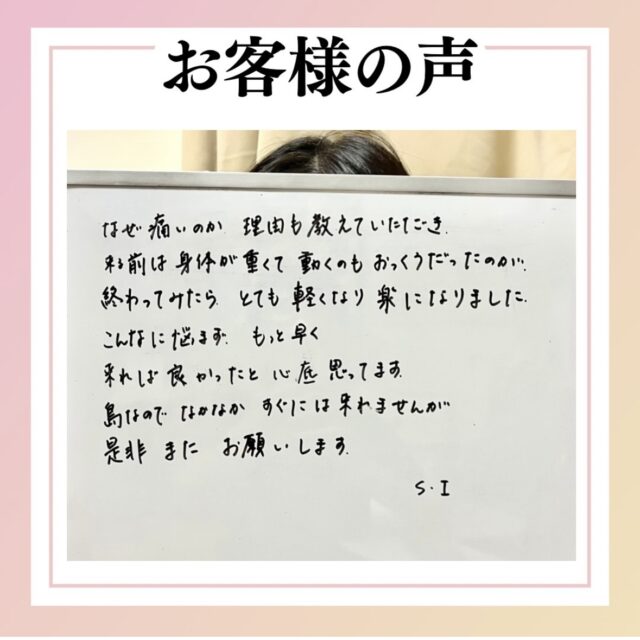 お客様の声
なぜ痛いのか 理由も教えていただき
来る前は身体が重くて 動くのもおっくうだったのが、
終わってみたら とても軽くなり 楽になりました。
こんなに悩まず もっと早く
来れば良かったと 心底思ってます。
島なので なかなか すぐには来れませんが
是非 また お願いします。
S・I